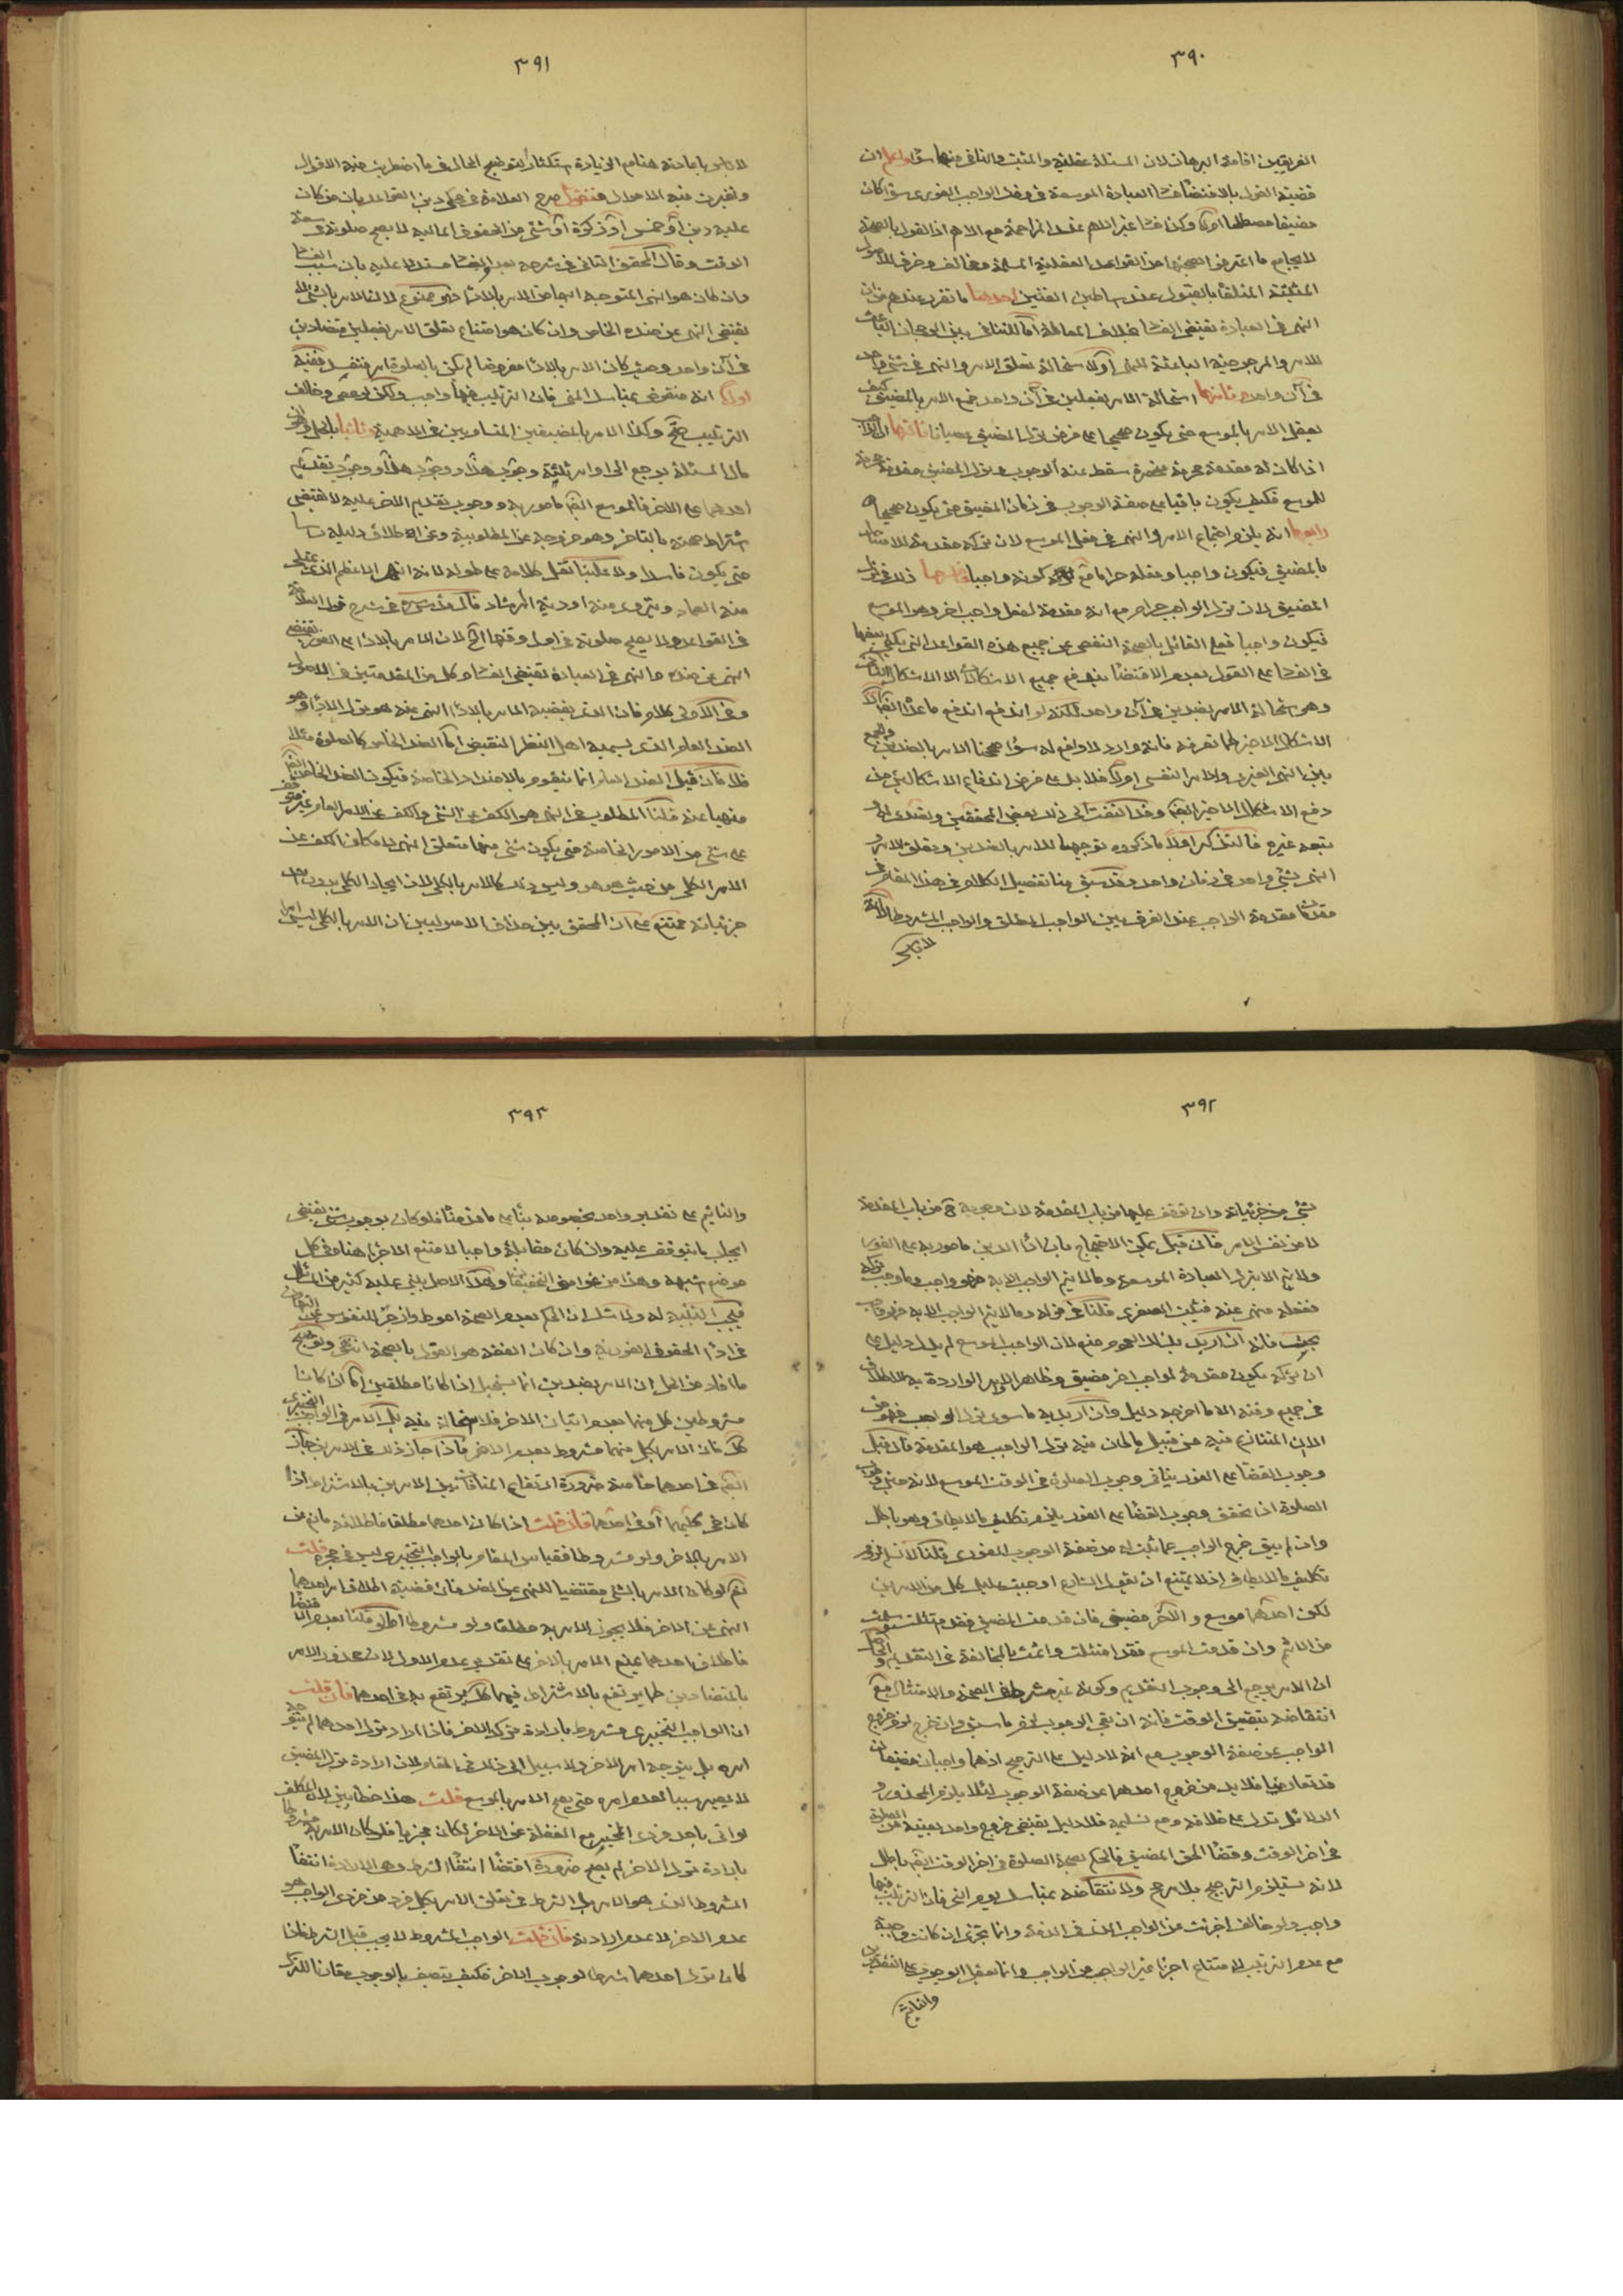 ٣٩٠
الفريقين اقامة البرهان لان المسئلة عقلية والمثبت والنافى فيها سواء واعلم ان
قضية القول بالاقتضاء فساد العبادة الموسعة فى وقت الواجب الفورى سواء كان
مضيقا مصطلحا اولا وكذا فساد غير الاهم عند المزاحمة مع الاهم اذ القول بالصحة
لا يجامع ما اعترض الصحة من القواعد العقلية المسلمة ومخالف وخرق للاصول
المثبتة المتلقاة بالقبول عند اساطين الفنين احدها ما تقرر عندهم من ان
النهى فى العبادة يقتضى الفساد بخلاف المعاملة اما للتنافى بين الرجحان الباعث
للامر والمرجوحية الباعثة للنهى اولاستحالة تعلق الامر والنهى فى شئ واحد
فى آن واحد ثانيها استحالة الامر بفعلين فى آن واحد فمع الامر بالمضيق كيف
يعقل الامر بالموسع حتى يكون صحيحا على فرض ترك المضيق عصيانا ثالثها ان الواجب
اذا كان له مقدمة محرمة منحصرة سقط عنه الوجوب وترك المضيق مقدمة محرمة
للموسع فكيف يكون باقيا على صفة الوجوب فى زمان المضيق حتى يكون صحيحا
رابعها انه يلزم اجتماع الامر والنهى فى فعل الموسع لان تركه مقدمة للامتثال
بالمضيق فيكون واجبا وفعله حراما مع كونه واجبا خامسها ذلك فى ترك
المضيق لان ترك الواجب حرام مع انه مقدمة لفعل واجب اخر وهو الموسع
فيكون واجبا فعلى القائل بالصحة التفصى عن جميع هذه القواعد التى يكفى بعضها
فى الفساد على القول بعدم الاقتضاء يندفع جميع الاشكالات الا الاشكال الثانى
وهو استحالة الامر بضدين فى آن واحد لكنه لو اندفع اندفع ما عداه ايضا الا
الاشكال الاخير لما تعرفه فانه وارد لا دافع له سواء صححنا الامر بالضدين وجمع
بين النهى الغيرى والامر النفسى اولا فلا بد على فرض اندفاع الاشكال من
دفع الاشكال الاخير ايضا وقد التفت الى ذلك بعض المحققين وتصدى له و
تبعه غيره فالنذكر اولا ما ذكروه توجيها للامر بالضدين وتعلق الامر و
النهى بشئ واحد فى زمان واحد وقد سبق منا تفصيل الكلام فى هذا المقام فى
مقدمة مقدمة الواجب عند الفرق بين الواجب المطلق والواجب المشروط الا انه
لا باس
٣٩١
لا باس باعادته هنا مع الزيادة استكثارا لتوضيح الحال فى ما اضطربت فيه الاقوال
وتغيرت فيه الاحوال فنقول صرح العلامة فى محكى دين القواعد بان من كان
عليه دين أو خمس أو زكوة أو شئ من الحقوق المالية لا يصح صلوته فى سعة
الوقت وقال المحقق الثانى فى شرحه بعد مستدلا عليه بان سبب الفساد
وان كان هو النهى المتوجه اليها من الامر بالاداء فهو ممنوع لان الامر بالشئ لا
يقتضى النهى عن ضده الخاص وان كان هو امتناع تعلق الامر بفعلين متضادين
فى آن واحد وحيث كان الامر بالاداء مفروضا لم يكن بالصلوة امر فتفسد ففيه
اولا انه منقوض بمناسك المنى فان الترتيب فيها واجب ولكن لو عصى وخالف
الترتيب صح وكذا الامر بالمضيقين المتساويين فى الاهمية وثانيا بالحل وهو
مال المسئلة يرجع الى اوامر ثلثة وجوب هذا ووجوب هذا ووجوب تقديم
احدهما على الاخر فالموسع ايضا مامور به ووجوب تقديم الاخر عليه لا يقتضى
اشتراط صحته بالتاخر وهو خروجه عن المطلوبية وعن اطلاق دليله
حتى يكون فاسدا ولا علينا نقل كلامه على طوله لانه النهر الاعظم الذى
منه العماد ويتروى منه اودية الرشاد قال قدس سره فى شرح قول العلامة
فى القواعد ولا يصح صلوته فى اول وقتها الخ لان الامر بالاداء على الفور يقتضى
النهى عن ضده والنهى فى العبادة يقتضى الفساد وكل من المقدمتين فى الاصول
وفى الاولى كلام فان الذى يقتضيه الامر بالاداء النهى عنه هو ترك الاداء وهو
الضد العام الذى يسميه اهل النظر النقيض اما الضد الخاص كالصلوة مثلا
فلا فان قيل الضد العام انما يتقوم بالاضداد الخاصة فيكون الضد الخاص ايضا
منهيا عنه قلنا المطلوب فى النهى هو الكف عن الشئ والكف عن الامر العام غير متوقف
على شئ من الامور الخاصة حتى يكون شئ منها متعلق النهى لامكان الكف عن
الامر الكلى من حيث هو هو وليس ذلك كالامر بالكلى لان ايجاد الكلى بدون احد
جزئياته ممتنع على ان المحقق بين حذاق الاصوليين ان الامر بالكلى ليس امرا
٣٩٢
بشئ من جزئياته وان توقف عليها من باب المقدمة لان وجوبه ح من باب المقدمة
لا من نفس الامر فان قيل يمكن الاحتجاج بان اداء الدين مامور به على الفور
ولا يتم الا بترك العبادة الموسعة وما لا يتم الواجب الا به فهو واجب وما وجب تركه
ففعله منهى عنه فثبت الصغرى قلنا فى قوله وما لا يتم الواجب الا به فهو واجب
بحث فانه ان اريد بذلك العموم منع لان الواجب الموسع لم يدل دليل على
ان تركه يكون مقدمة لواجب اخر مضيق وظاهر الاوامر الواردة به الاطلاق
فى جميع وقته الا ما اخرجه دليل وان اريد به ما سوى ترك الواجب فهو من
الامر المتنازع فيه من قبيل ما كان فيه ترك الواجب هو المقدمة فان قيل
وجوب القضاء على الفور ينافى وجوب الصلوة فى الوقت الموسع لانه حين وجوب
الصلوة اذا تحقق وجوب القضاء على الفور يلزم تكليف ما لا يطاق وهو باطل
وان لم يبق خرج الواجب عما ثبت له من صفة الوجوب الفورى قلنا لا نسلم لزوم
تكليف ما لا يطاق اذ لا يمتنع ان يقول الشارع اوجبت عليك كلا من الامرين
لكن احدهما موسع و الاخر مضيق فان قدمت المضيق فقد امتثلت وسلمت
من الاثم وان قدمت الموسع فقد امتثلت واثمت بالمخالفة فى التقديم والحاصل
ان الامر يرجع الى وجوب التقديم وكونه غير مشروط فى الصحة والامتثال مع
انتقاضه بتضيق الوقت فانه ان بقى الوجوب لزم ما سبق وان خرج لزم خروج
الواجب عن صفة الوجوب مع انه لا دليل على الترجيح اذ هما واجبان مضيقان
قد تعارضا فلا بد من خروج احدهما عن صفة الوجوب لئلا يلزم المحذور و
الدلائل تدل على خلافه ومع تسليمه فلا دليل يقتضى خروج واحد بعينه من الصلوة
فى اخر الوقت وقضاء الحق المضيق فالحكم بصحة الصلوة فى اخر الوقت ايضا باطل
لانه يستلزم الترجيح بلا مرجح ولانتقاضه بمناسك يوم النحر فان الترتيب فيها
واجب ولو خالف اجزئت عن الواجب الذى فى الذمة وانما تجزى ان كانت واجبة
مع عدم الترتيب لامتناع اجزاء غير الواجب عن الواجب وانما يعقل الوجوب على التقديرين
والتاثيم
٣٩٣
والتاثيم على تقدير واحد بخصوصه بناء على ما قدمناه فلو كان يوجب شئ يقتضى
ايجاب ما يتوقف عليه وان كان مقابله واجبا لامتنع الاجزاء هنا وفى كل
موضع اشبهه وهذا من غوامض التحقيقات وهذا الاصل يبنى عليه كثير من المسائل
فيجب التنبيه له ولا شك ان الحكم بعدم الصحة احوط وازجر للنفوس عن التهاون
فى اداء الحقوق الفورية وان كان الفقه هو القول بالصحة انتهى وتوضيح
ما افاد من الحل ان الامر بضدين انما يستحيل اذا كانا مطلقين اما ان كانا
مشروطين كل منهما بعدم اتيان الاخر فلا استحالة فيه بل الامر فى الواجب التخييرى
كك فان الامر بكل منهما مشروط بعدم الاخر فاذا جاز ذلك فى الامرين جاز
ايضا فى احدهما خاصة ضرورة ارتفاع المنافاة بين الامرين بالاشتراط اذا
كان فى كليهما أو فى احدهما فان قلت اذا كان احدهما مطلقا فاطلاقه مانع من
الامر بالاخر ولو مشروطا فقياس المقام بالواجب التخييرى ليس فى محله قلت
نعم لو كان الامر بالشئ مقتضيا للنهى عن الضد فان قضية اطلاق امر احدهما
النهى عن الاخر فلا يجوز الامر به مطلقا ولو مشروطا اما لو قلنا بعدم الاقتضاء
فاطلاق احدهما يمنع الامر بالاخر على تقدير عدم الاول لان محذور الامر
بالمتضادين كما يرتفع بالاشتراط فيهما كك يرتفع به فى احدهما فان قلت
ان الواجب التخييرى مشروط بارادة ترك الاخر فاذا اراد ترك احدهما لم يتوجه
امره بل يتوجه امر الاخر ولا سبيل الى ذلك فى المقام لان ارادة ترك المضيق
لا يصير سببا لعدم امره حتى يصح الامر بالموسع قلت هذا خطا بين لان المكلف
لو اتى باحد فردى المخير مع الغفلة عن الاخر لكان مجزيا فلو كان الامر به مشروطا
بارادة ترك الاخر لم يصح ضرورة اقتضاء انتفاء الشرط وهى الارادة انتفاء
المشروط الذى هو الامر بل الشرط فى تعلق الامر بكل فرد من فردى الواجب هو
عدم الاخر لا عدم ارادته فان قلت الواجب المشروط لا يجب قبل الشرط فاذا
كان ترك احدهما شرطا لوجوب الاخر فكيف يتصف بالوجوب مقارنا للترك